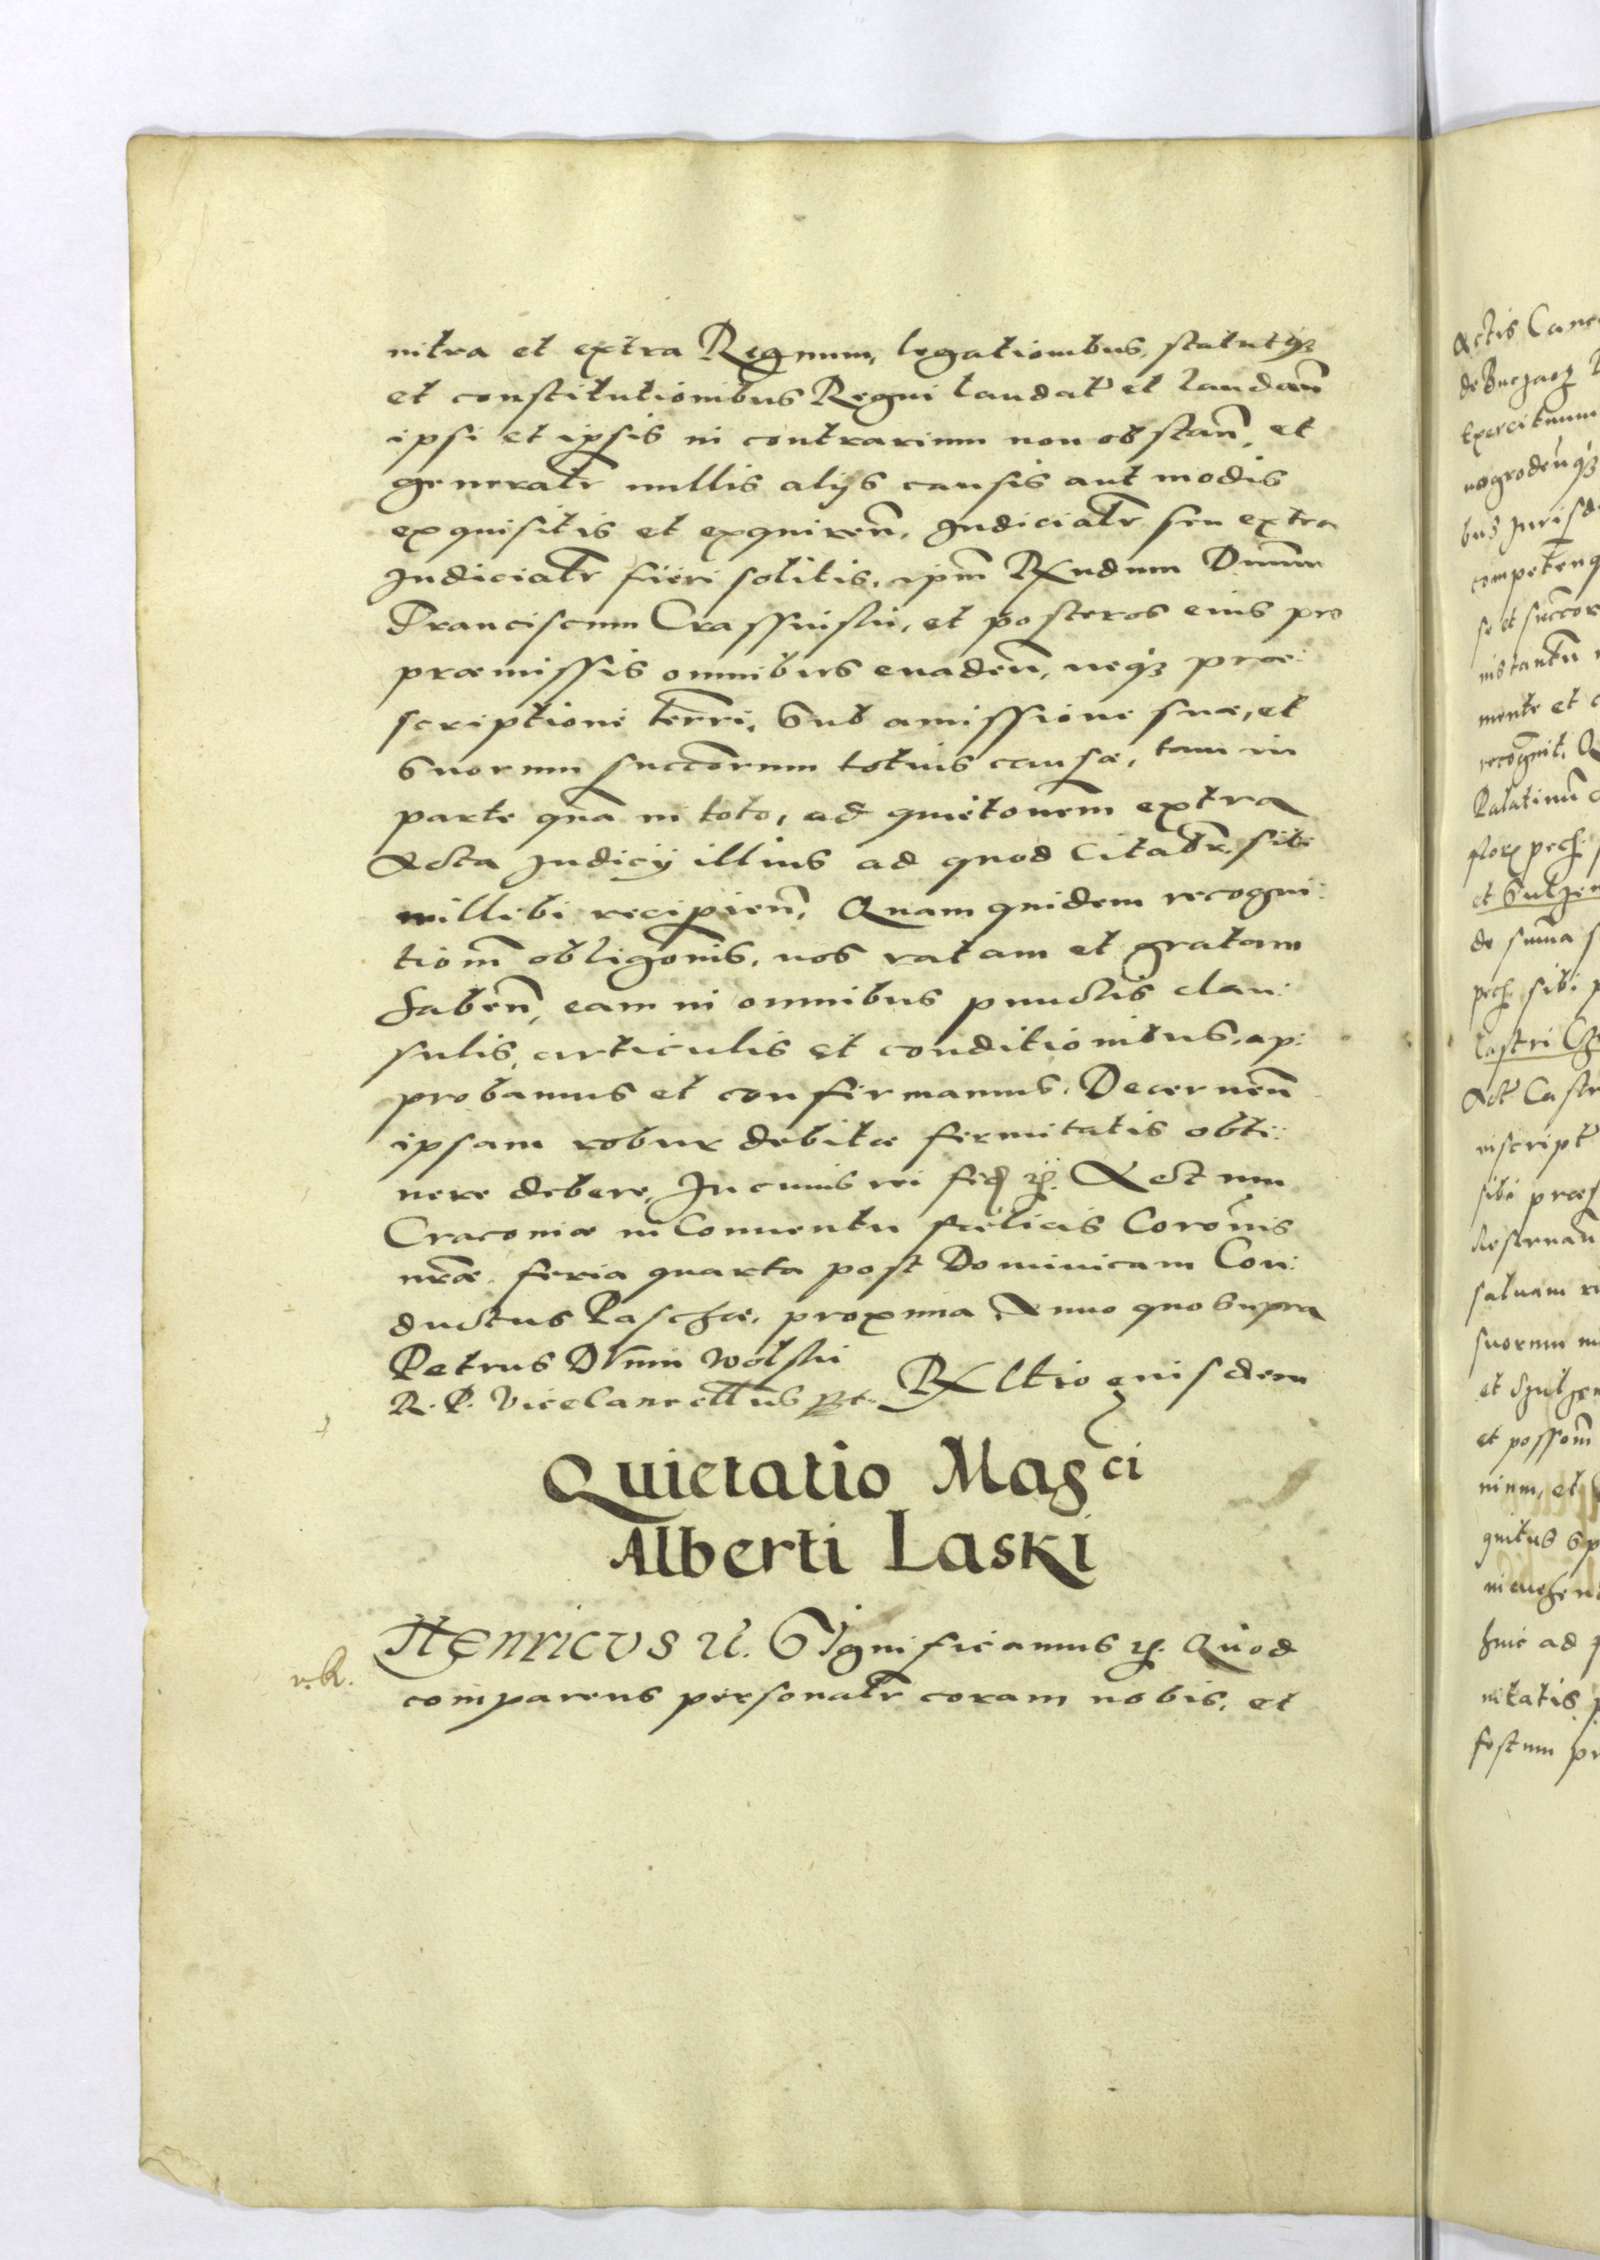 intra et extra Regnum, legationibus, statutisq3
et constitutionibus Regni laudat et laudan̄
ipsi et ipsis in contrarium non obstan̄, et
generalr̄ nullis alijs causis aut modis
exquisitis et exquiren̄, Judicialr̄ seu extra
Judicialr̄ fieri solitis, ipm̄ Rx̄ndum Dnūm
Franciscum Crassinski, et posteros eius pro
præmissis omnibus euaden̄, neq3 præ:
scriptione terr̄i, Sub amissione suæ, et
Suorum succorum totius causæ, tam in
parte qua in toto, ad quietonem extra
Acta Judicij illius ad quod Citabr̄, sibi
nillibi recipien̄, Quam quidem recogni:
tiom̄ obligon̄is, nos ratam et gratam
haben̄, eam in omnibus punctis clau:
sulis, articulis et conditionibus, ap:
probamus et confirmamus, Decernen̄
ipsam robur debitæ firmitatis obti:
nere debere, In cuius rei fid etc. Actum
Cracouiæ in Conuentu fælicis Coron̄is
nr̄æ, feria quarta post Dominicam Con:
ductus Paschæ, proxima Anno quo supra
Petrus Dunin Wolski
R. P. ViceCancellus sst. Rx̄ltio eiusdem
Quietatio Magci
Alberti Laski
Henricus etc. Significamus etc. Quod
comparens personalr̄ coram nobis, et
Actis Canc
de Buczacz
exercituum
nogrodenq3
competenq
se et succor
instantm̄
mente et
recognit, Q
Palatinū
et Sulzen
de summa
pech sibi
Castri
Act Castr
inscript
sibi præ
Reseruan̄
saluam
suorum
et Szulzen
et possom̄
huic ad
festum